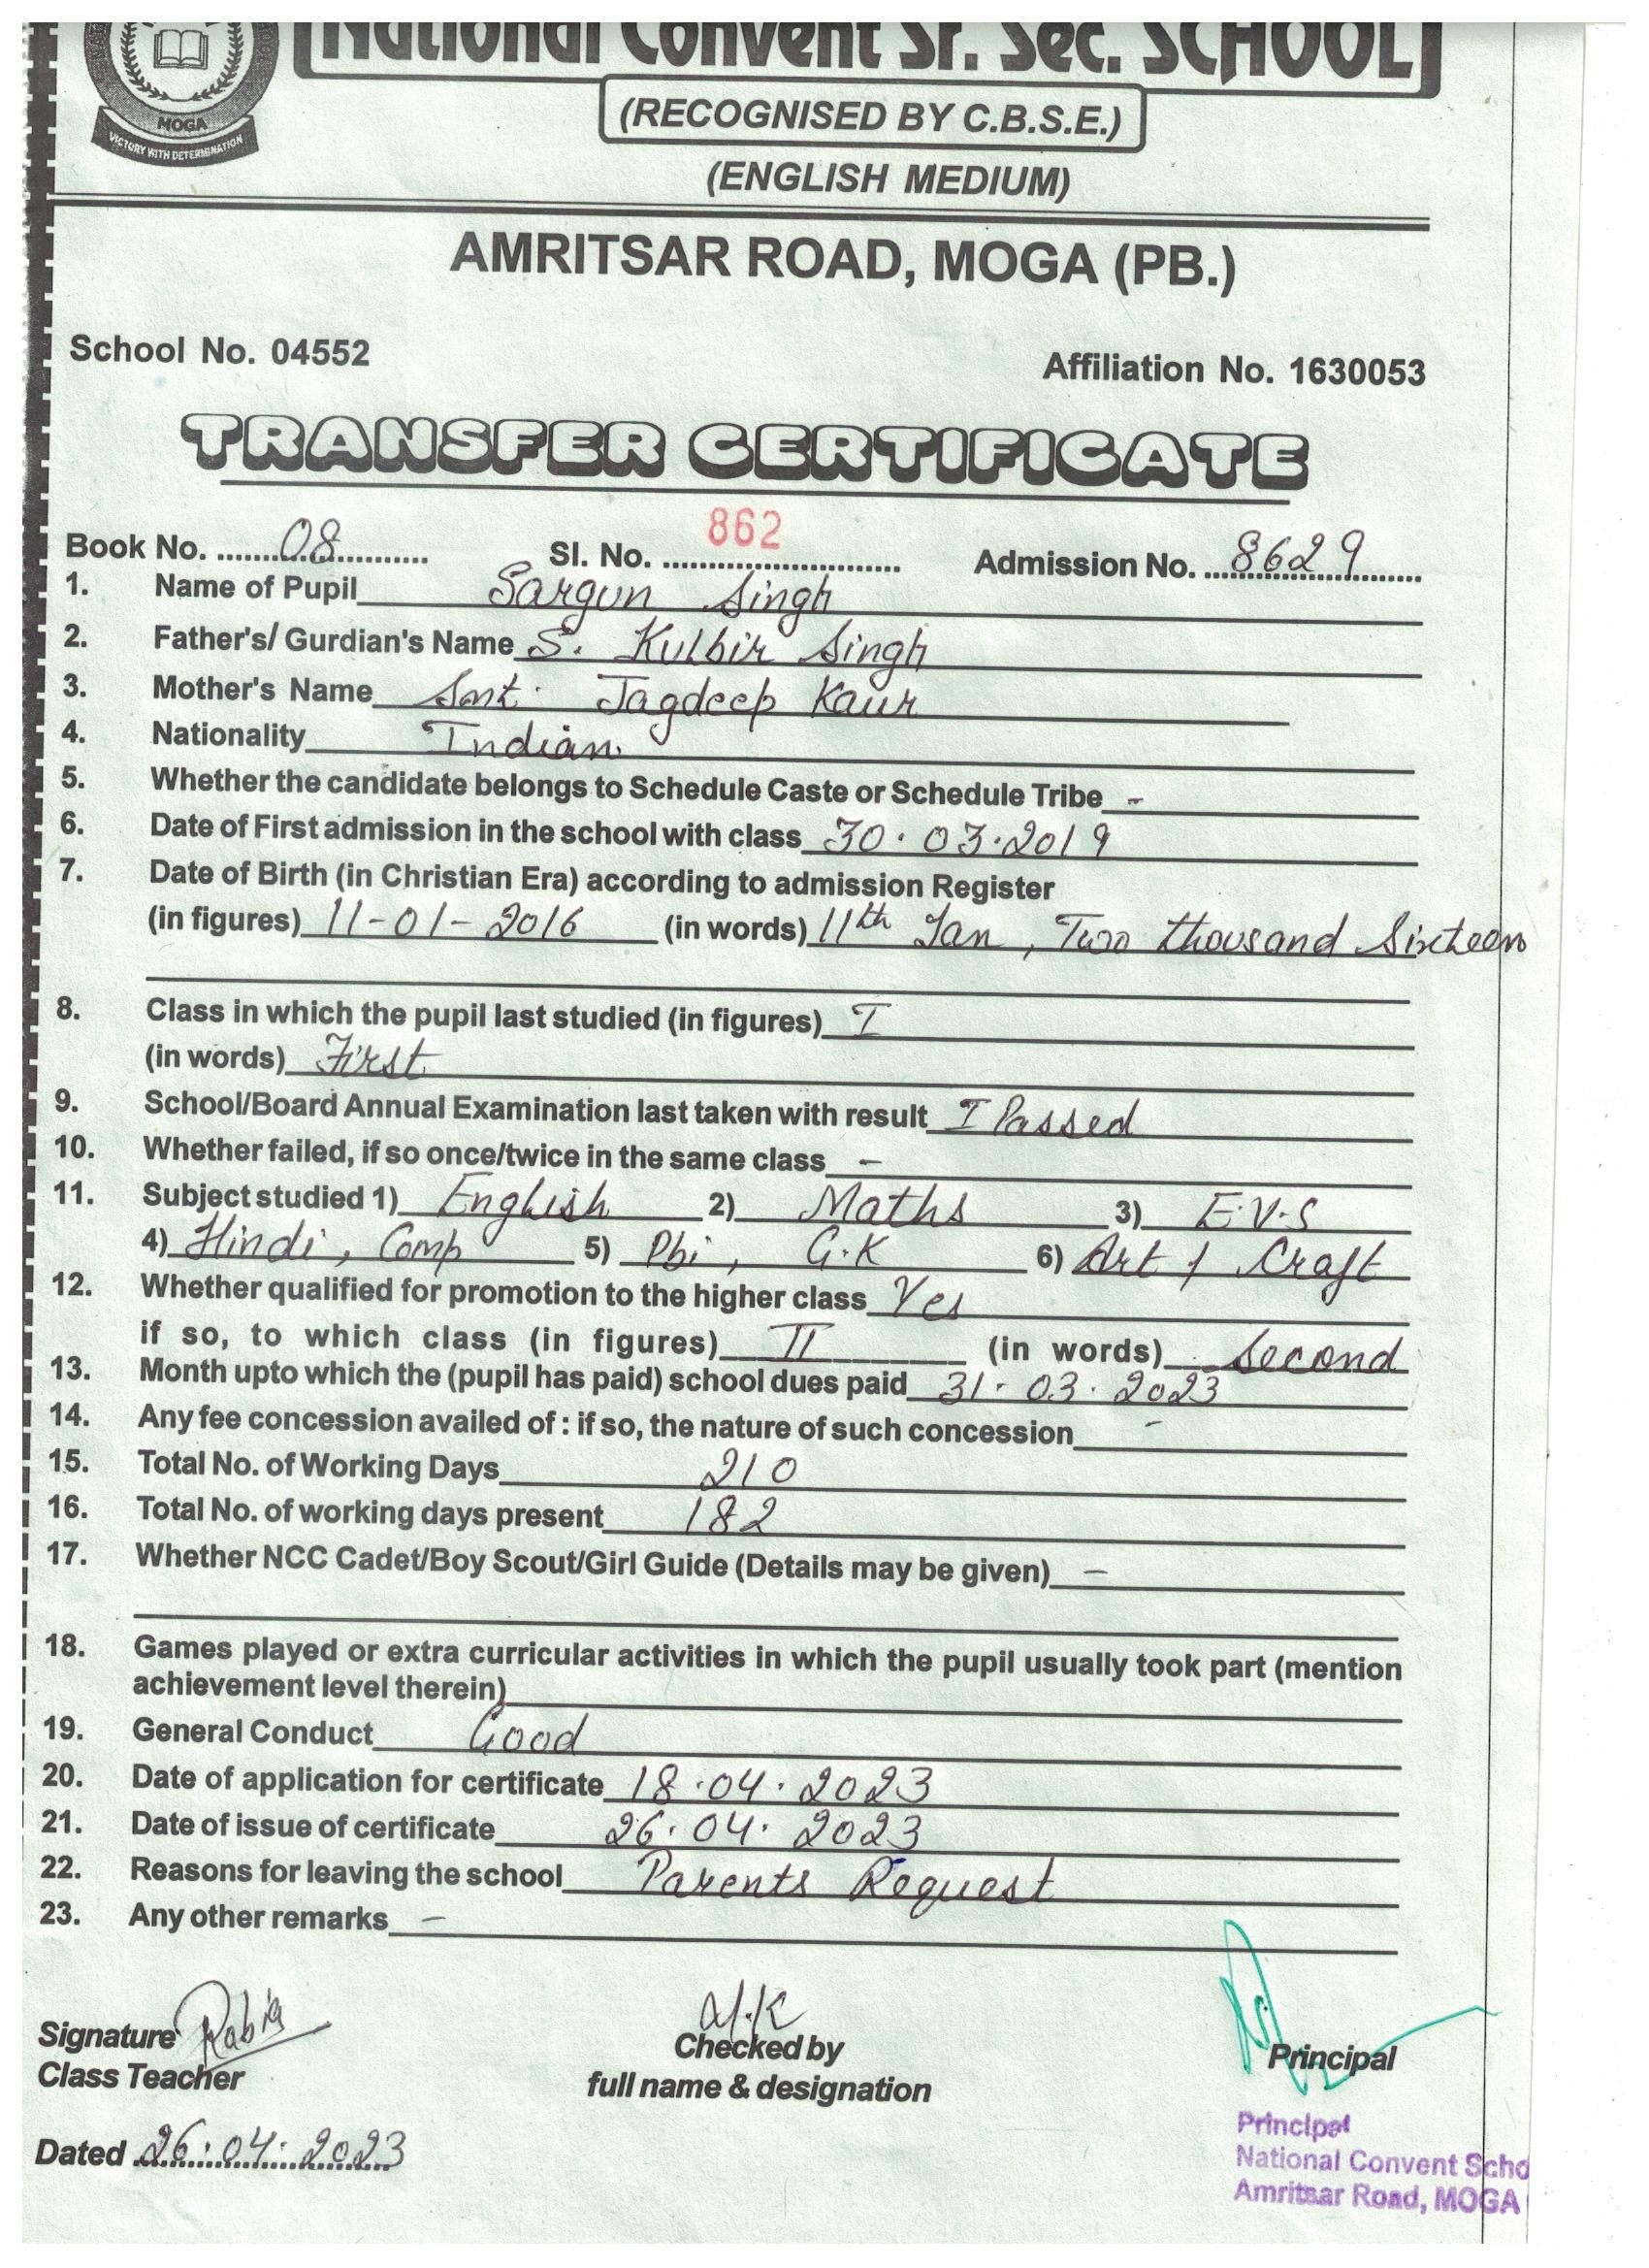 National Convent Sr. Sec. SCHOOL
MOGA
VICTORY WITH DETERMINATION
(RECOGNISED BY C.B.S.E.)
(ENGLISH MEDIUM)
AMRITSAR ROAD, MOGA (PB.)
School No. 04552 Affiliation No. 1630053
TRANSFER CERTIFICATE
Book No. 08 Sl. No. 862 Admission No. 8629
1. Name of Pupil Sargun Singh
2. Father's/ Gurdian's Name S. Kulbir Singh
3. Mother's Name Smt. Jagdeep Kaur
4. Nationality Indian.
5. Whether the candidate belongs to Schedule Caste or Schedule Tribe -
6. Date of First admission in the school with class 30.03.2019
7. Date of Birth (in Christian Era) according to admission Register
(in figures) 11-01-2016 (in words) 11th Jan, Two thousand Sixteen
8. Class in which the pupil last studied (in figures) I
(in words) First
9. School/Board Annual Examination last taken with result I Passed
10. Whether failed, if so once/twice in the same class -
11. Subject studied 1) English 2) Maths 3) E.V.S
4) Hindi, Comp 5) Pbi, G.K 6) Art / Craft
12. Whether qualified for promotion to the higher class Yes
if so, to which class (in figures) II (in words) Second
13. Month upto which the (pupil has paid) school dues paid 31.03.2023
14. Any fee concession availed of : if so, the nature of such concession -
15. Total No. of Working Days 210
16. Total No. of working days present 182
17. Whether NCC Cadet/Boy Scout/Girl Guide (Details may be given) -
18. Games played or extra curricular activities in which the pupil usually took part (mention
achievement level therein)
19. General Conduct Good
20. Date of application for certificate 18.04.2023
21. Date of issue of certificate 26.04.2023
22. Reasons for leaving the school Parents Request
23. Any other remarks -
Signature Rabia
Class Teacher
Checked by
full name & designation
Principal
Dated 26.04.2023
Principal
National Convent Scho
Amritsar Road, MOGA